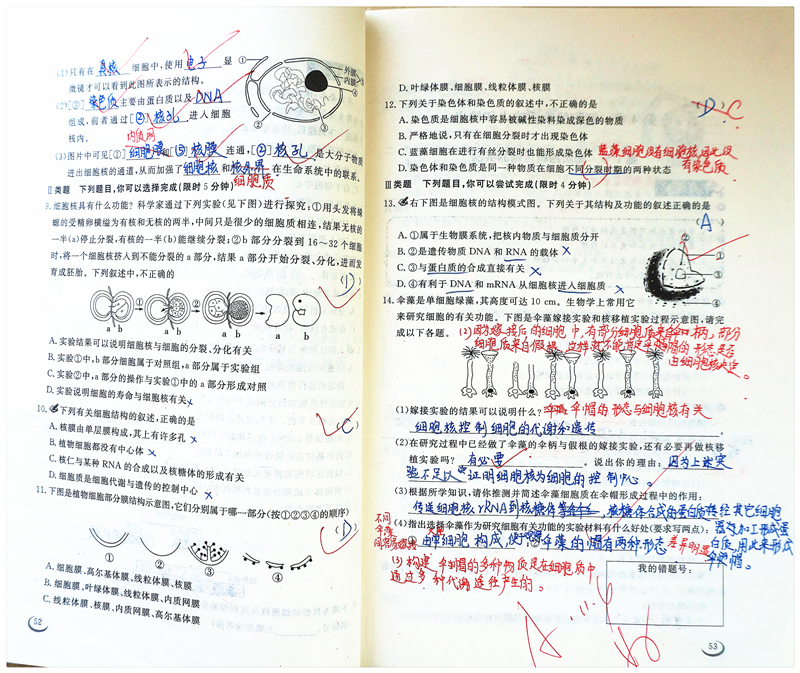 (1)只有在 真核 细胞中,使用 电子 显
微镜才可以看到此图所表示的结构。
①
外膜
内膜
⑤
④
②
③
(2)[③] 染色质 主要由蛋白质以及 DNA
组成,前者通过[②] 核孔 进入细胞
核内。
内质网
(3)图片中可见[①] 细胞膜 和[⑤] 核膜 连通,[②] 核孔 是大分子物质
进出细胞核的通道,从而加强了 细胞核 和 在生命系统中的联系。
细胞质
Ⅱ类题 下列题目,你可以选择完成(限时5分钟)
9.细胞核具有什么功能?科学家通过下列实验(见下图)进行探究:①用头发将蝾
螈的受精卵横缢为有核和无核的两半,中间只是很少的细胞质相连,结果无核的
一半(a)停止分裂,有核的一半(b)能继续分裂;②b部分分裂到16~32个细胞
时,将一个细胞核挤入到不能分裂的a部分,结果a部分开始分裂、分化,进而发
育成胚胎。下列叙述中,不正确的
(D)
① ②
a b a b a b
A.实验结果可以说明细胞核与细胞的分裂、分化有关
B.实验①中,b部分细胞属于对照组,a部分属于实验组
C.实验②中,a部分的操作与实验①中的a部分形成对照
D.实验说明细胞的寿命与细胞核有关
10.下列有关细胞结构的叙述,正确的是
(C)
A.核膜由单层膜构成,其上有许多孔
B.植物细胞都没有中心体
C.核仁与某种RNA的合成以及核糖体的形成有关
D.细胞质是细胞代谢与遗传的控制中心
11.下图是植物细胞部分膜结构示意图,它们分别属于哪一部分(按①②③④的顺序)
(D)
① ② ③ ④
A.细胞膜、高尔基体膜、线粒体膜、核膜
B.细胞膜、叶绿体膜、线粒体膜、内质网膜
C.线粒体膜、核膜、内质网膜、高尔基体膜
52
D.叶绿体膜、细胞膜、线粒体膜、核膜
12.下列关于染色体和染色质的叙述中,不正确的是
(D) C
A.染色质是细胞核中容易被碱性染料染成深色的物质
B.严格地说,只有在细胞分裂时才出现染色体
C.蓝藻细胞在进行有丝分裂时也能形成染色体 蓝藻细胞没有细胞核因此没
有染色质
D.染色体和染色质是同一种物质在细胞不同分裂时期的两种状态
Ⅲ类题 下列题目,你可以尝试完成(限时4分钟)
13.右下图是细胞核的结构模式图。下列关于其结构及功能的叙述正确的是
(A)
A.①属于生物膜系统,把核内物质与细胞质分开
B.②是遗传物质DNA和RNA的载体
C.③与蛋白质的合成直接有关
D.④有利于DNA和mRNA从细胞核进入细胞质
②
①
③
④
14.伞藻是单细胞绿藻,其高度可达10 cm。生物学上常用它
来研究细胞的有关功能。下图是伞藻嫁接实验和核移植实验过程示意图,请完
成以下各题。
(2)因为嫁接后的细胞中,有部分细胞质来自伞柄,部分
细胞质来自假根,这样就不能肯定伞帽的形态是否
由细胞核决定。
(1)嫁接实验的结果可以说明什么? 伞帽的形态与细胞核有关
细胞核控制细胞的代谢和遗传 。
(2)在研究过程中已经做了伞藻的伞柄与假根的嫁接实验,还有必要再做核移
植实验吗? 有必要 。说出你的理由: 因为上述实
验不足以证明细胞核为细胞的控制中心 。
(3)根据所学知识,请你推测并简述伞藻细胞质在伞帽形成过程中的作用:
传送细胞核rRNA到核糖体等合成 核糖体合成的蛋白质转经其它细胞
器加工形成蛋
白质,用此来形成
伞帽。
(4)指出选择伞藻作为研究细胞有关功能的实验材料有什么好处(要求写两点):
不同
伞藻
单细胞构成 伞藻的帽有两种形态 差异明显
(3)构建伞帽的多种物质是在细胞质中
通过多种代谢途径产生的。
我的错题号:
53